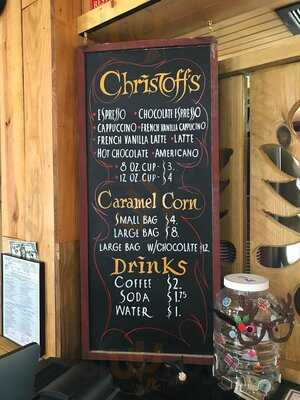 Christoff's
• Espresso • Chocolate Espresso
• Cappuccino • French Vanilla Cappucino
• French Vanilla Latte • Latte
Hot Chocolate • Americano
• 8 oz. Cup • $3.
• 12 oz. Cup • $4
Caramel Corn
Small Bag $4.
Large Bag $8.
Large Bag w/Chocolate $12.
Drinks
Coffee $2.
Soda $1.75
Water $1.